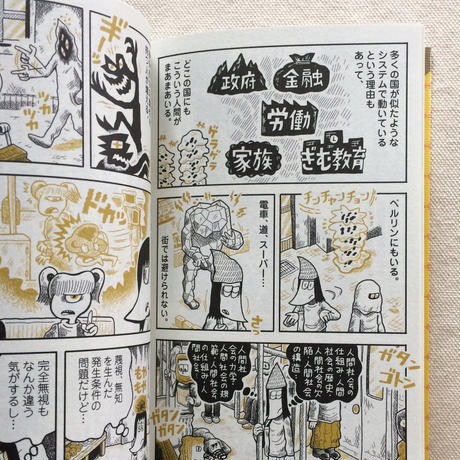 多くの国が似たような
システムで動いている
という理由も
あって、
政府
金融
労働
家族
ぎむ教育
どこの国にも
こういう人間が
まあまあいる。
ゲラゲラ
ベルリンにもいる。
チンチャンチョン
電車、道、スーパー…
街では避けられない。
ガタン
ゴトン
人間社会の
仕組み・人間
社会の歴史・
人間社会の欠
陥・人間社会
の構造・
人間社
会の力学・
人間社会の規
範・人間社会
の仕組み・人
間社会
ガタン
ガタン
ギーッ
ツカ
ツカ
ドカッ
蔑視、無知
を生んだ
発生条件の
問題だけど…
完全無視も
なんか違う
気がするし…